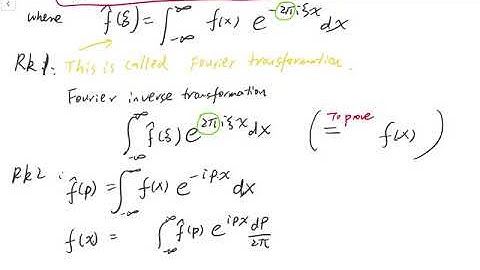 where f̂(ξ) = ∫_{-∞}^{∞} f(x) e^{-2πiξx} dx
Rk1. This is called Fourier transformation.
Fourier inverse transformation
∫_{-∞}^{∞} f̂(ξ) e^{2πiξx} dx ( = To prove f(x) )
Rk2. f̂(p) = ∫_{-∞}^{∞} f(x) e^{-ipx} dx
f(x) = ∫_{-∞}^{∞} f̂(p) e^{ipx} dp/2π